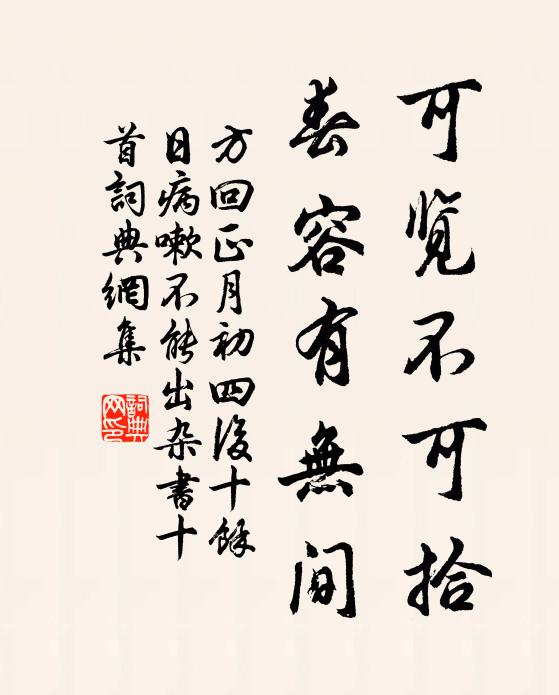 可览不可拾
春容有無间
方回正月初四後十餘
日病嗽不能出杂書十
首詞典網集
詞典
网印